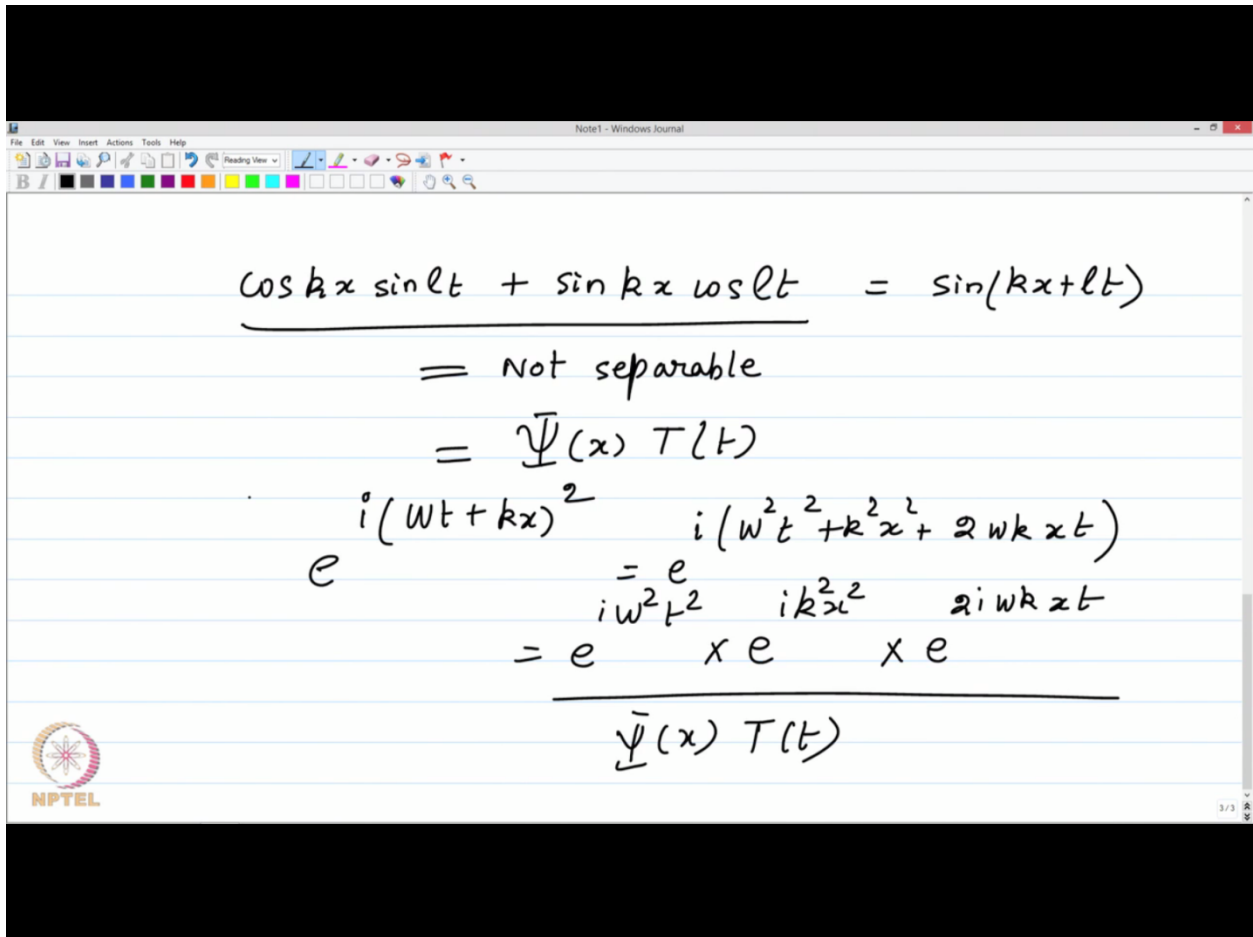 Note1 - Windows Journal
File Edit View Insert Actions Tools Help
Reading View
B I
cos kx sin lt + sin kx cos lt = sin(kx+lt)
= Not separable
= Ψ(x) T(t)
e^{i(wt + kx)^2} = e^{i(w^2t^2+k^2x^2+2wkxt)}
= e^{iw^2t^2} x e^{ik^2x^2} x e^{2iwkxt}
Ψ(x) T(t)
NPTEL
3/3